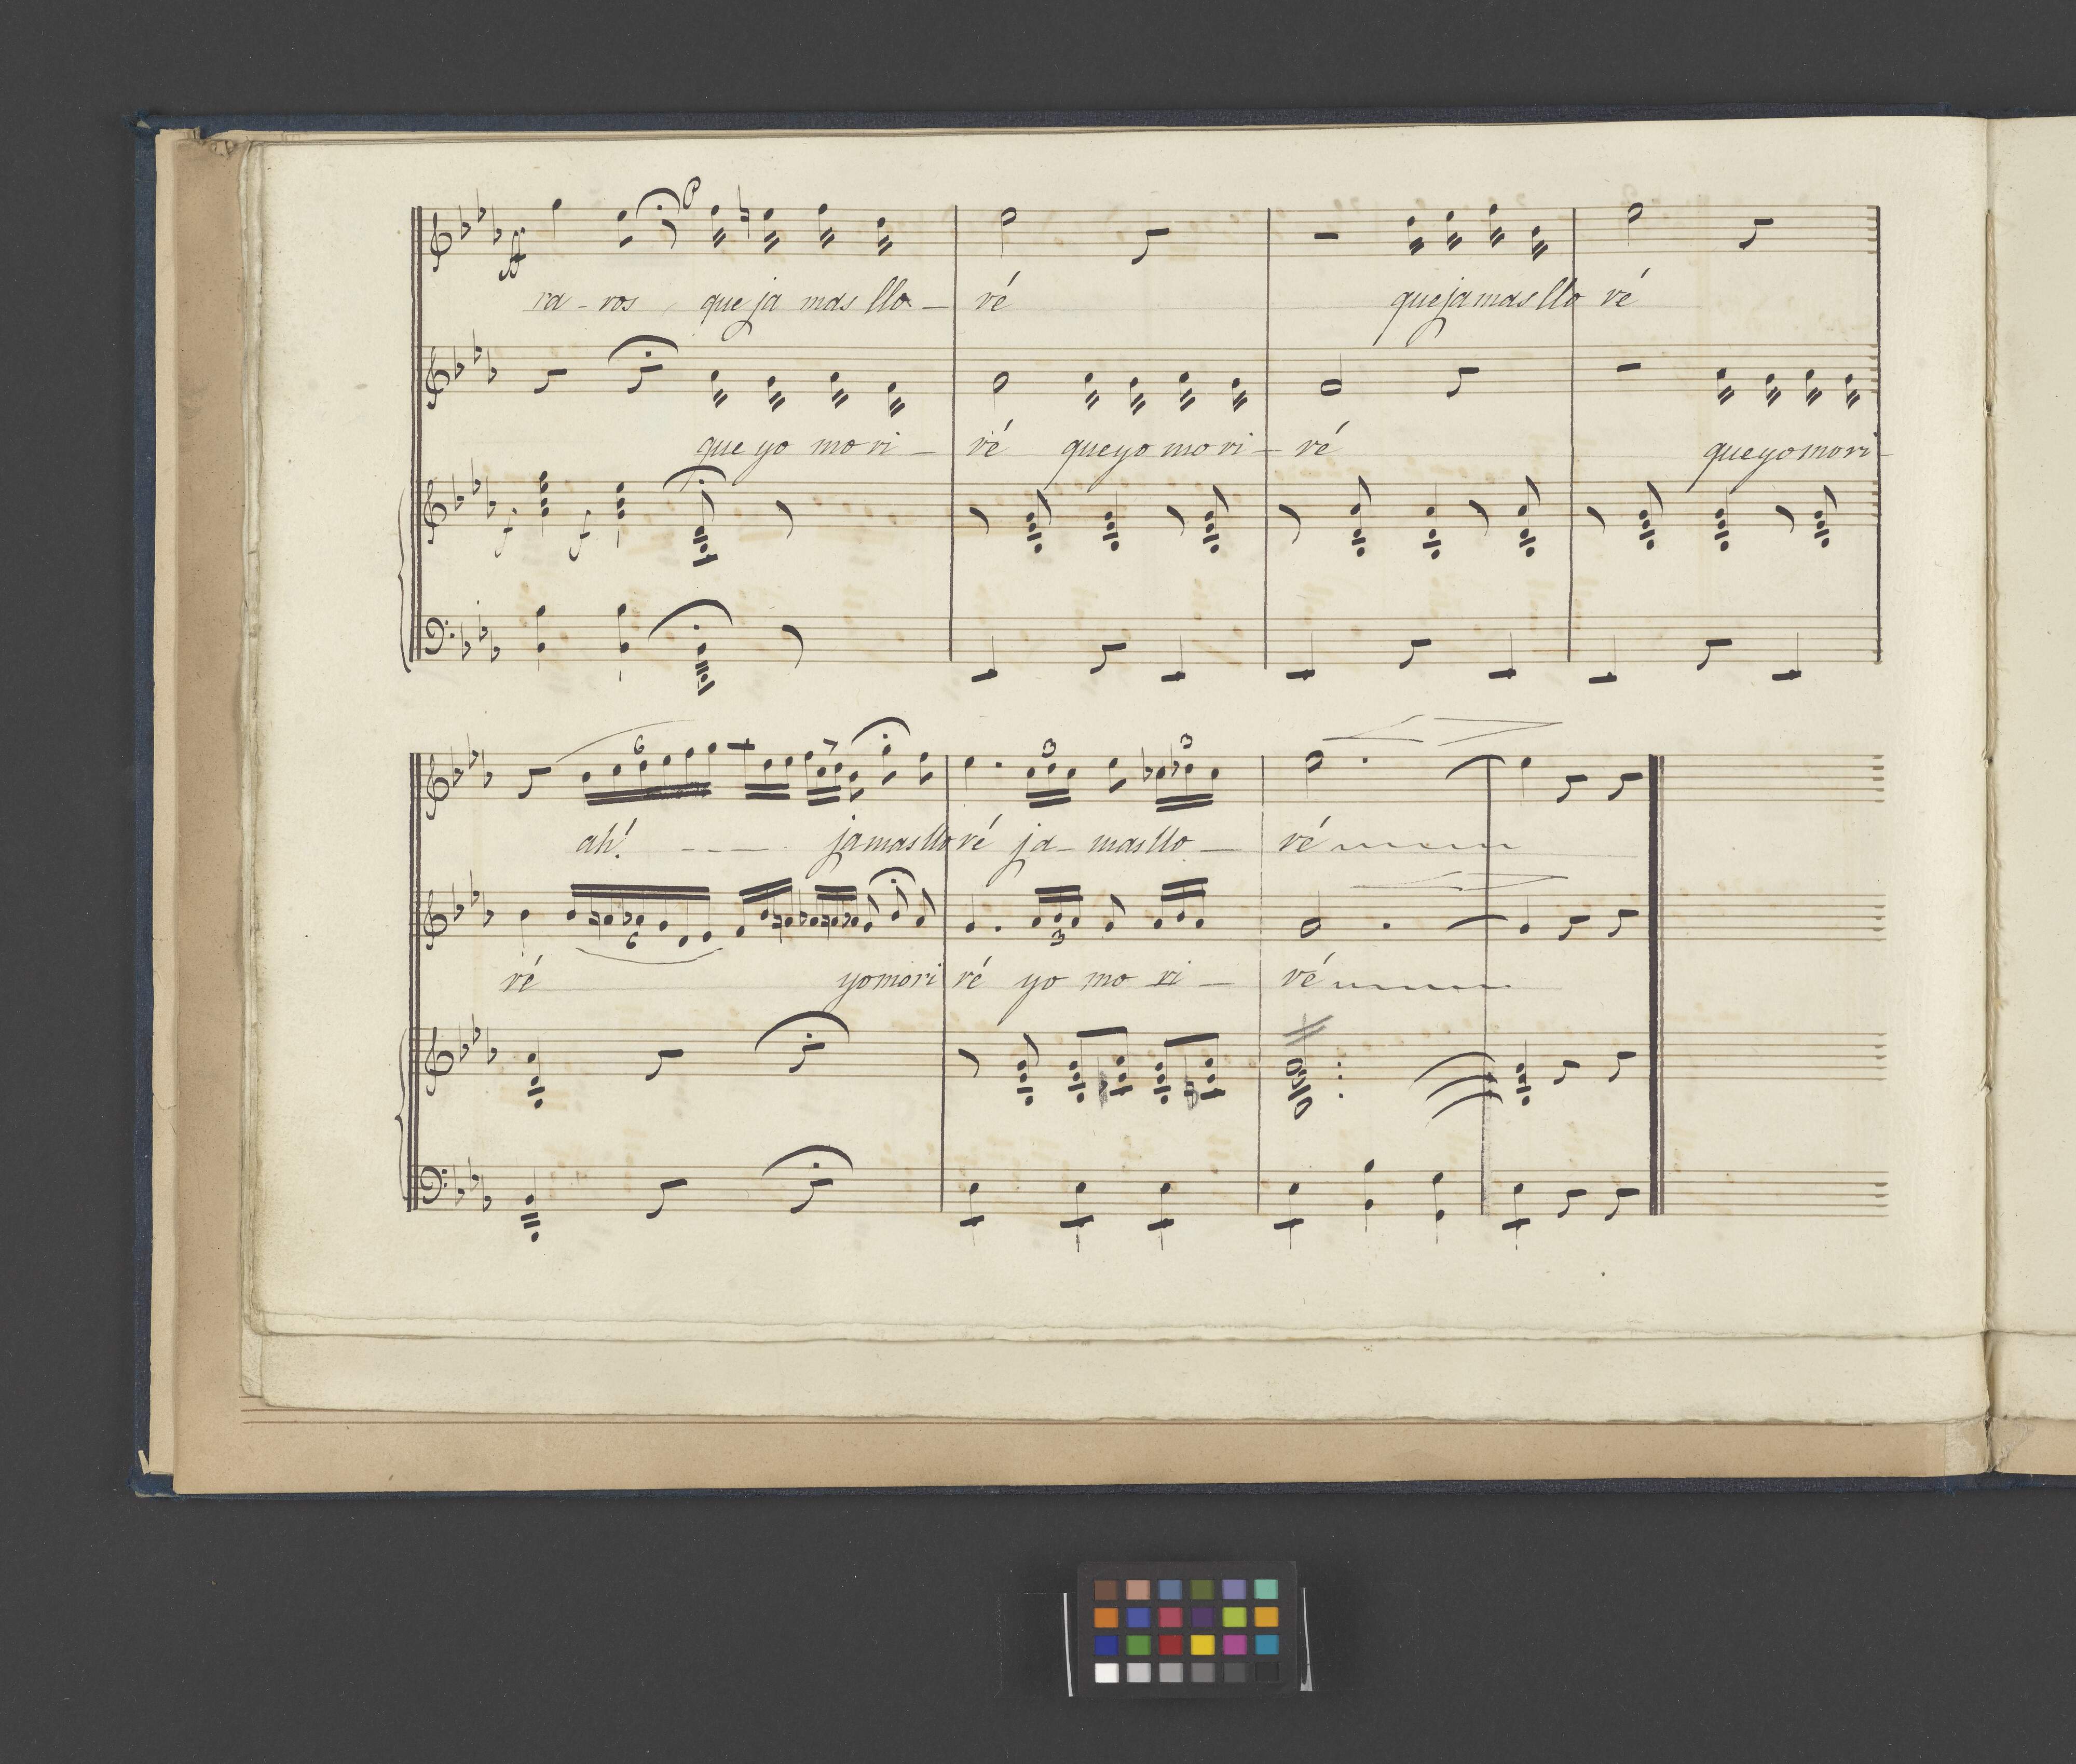 ff p
ra - ros que ja mas llo - ré que ja mas llo ré
que yo mo ri - ré que yo mo ri - ré que yo mori -
f f
6 7 3 3
ah! - - - - jamas llo ré ja - mas llo - ré
6 3
ré yo mori ré yo mo ri - ré